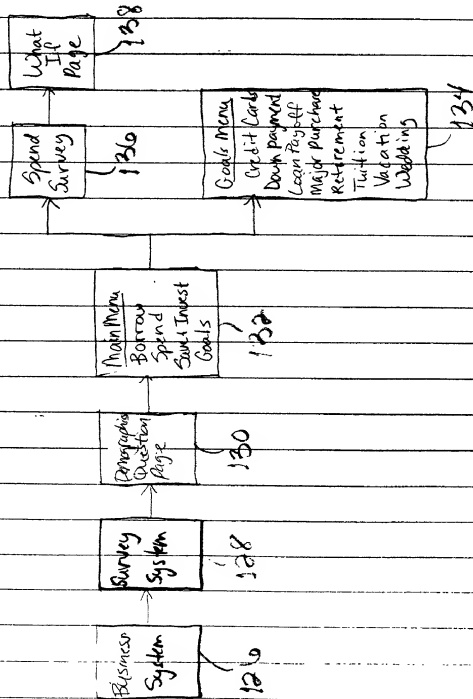 Business
System
126
Survey
System
128
Demographic
Question
Page
130
Main Menu
Borrow
Spend
Save/Invest
Goals
132
Spend
Survey
136
What
If
Page
138
Goals Menu
Credit Cards
Down payment
Loan Payoff
Major Purchase
Retirement
Tuition
Vacation
Wedding
134